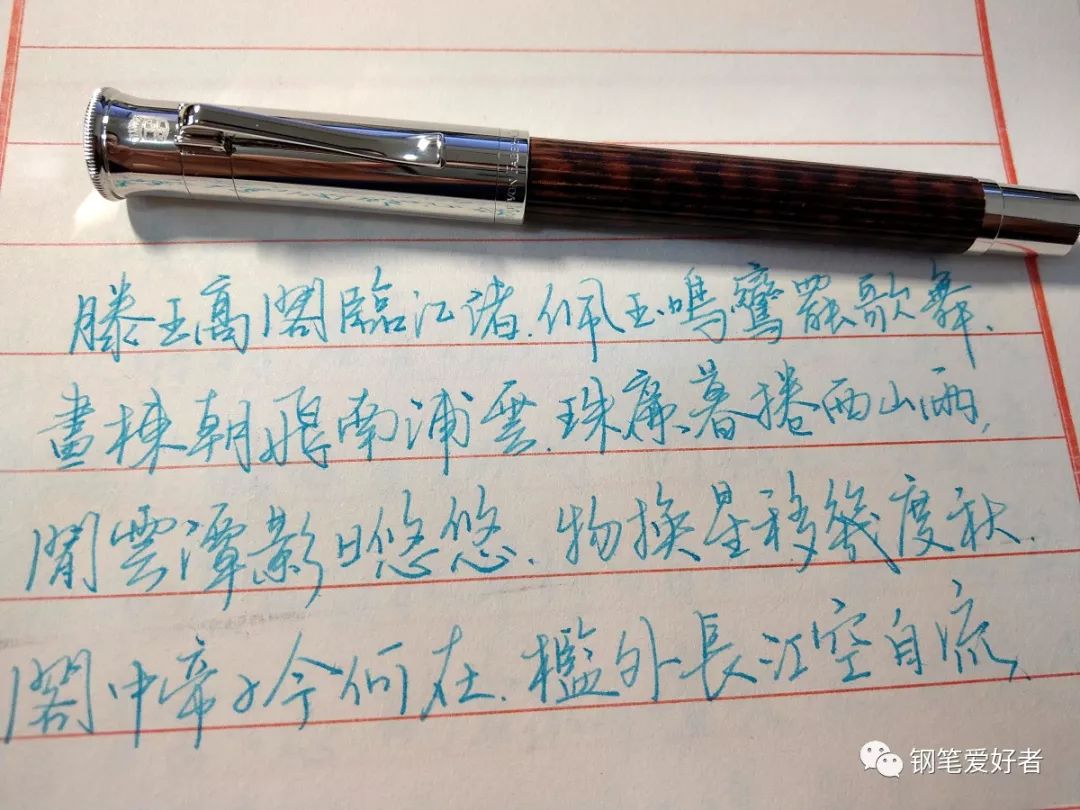 VON FABER-
滕王高閣臨江渚.佩玉鳴鸞罷歌舞.
畫棟朝飛南浦雲.珠簾暮捲西山雨,
閒雲潭影日悠悠.物換星移幾度秋.
閣中帝子今何在.檻外長江空自流.
钢笔爱好者